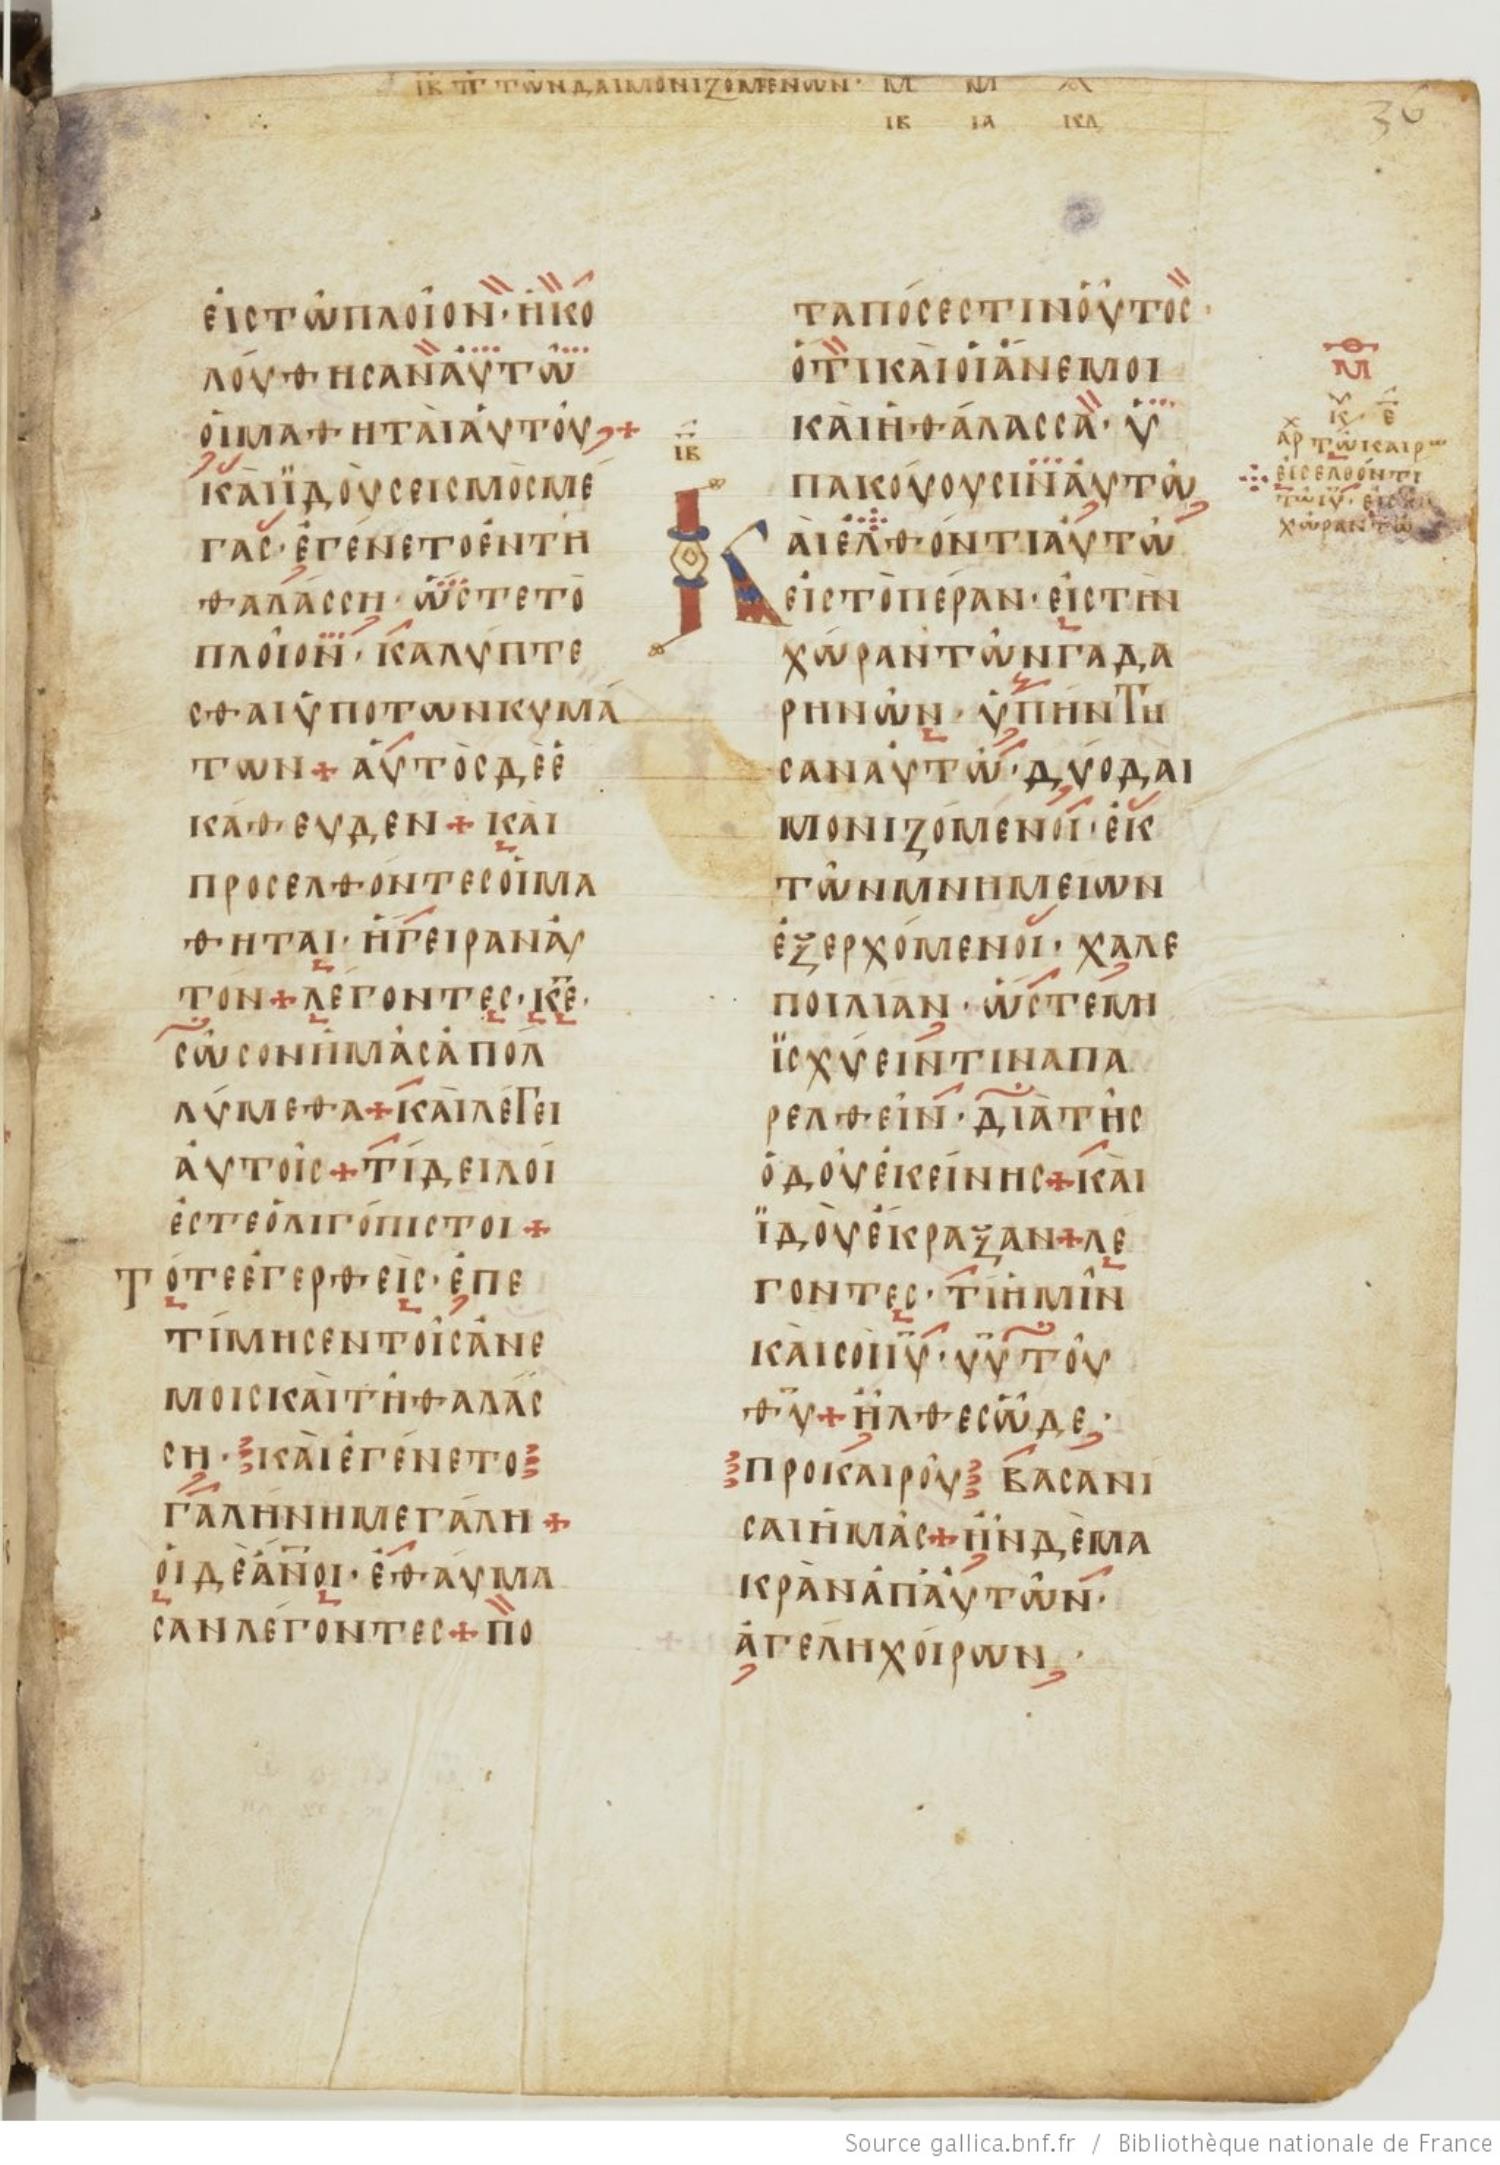 ΙΒ ΠΓ ΤΩΝ ΔΑΙΜΟΝΙΖΟΜΕΝΩΝ·
ΙΒ ΙΑ ΚΔ
36
ἐιστῶπλοῖον· ἠκο
λόυθησαναυτῶ
ὁιμαθητὰιἀυτοῦ +
κὰιϊδὸυσεισμὸσμέ
γασ· ἐγένετοέντῆ
θαλάσσῃ· ὥστετὸ
πλοῖον· καλύπτε
σθαιὑποτωνκυμά
των + ἀυτὸσδὲἐ
κάθευδεν + κὰι
προσελθόντεσὁιμα
θηται· ἤγειρανἀυ
τόν + λέγοντες· κε·
σῶσονἡμᾶσἀπολ
λύμεθα + κὰιλέγει
ἀυτοῖσ + τίδειλοί
ἐστεὀλιγόπιστοι +
τότεἐγερθεὶς· ἐπε
τίμησεντοῖσἀνέ
μοισκαὶτῆθαλάσ
ση· κὰιἐγένετο
γαλήνημεγάλη +
ὁιδὲἀνοι· ἐθαύμα
σανλέγοντεσ + πο
ταπόσεστινὁῦτοσ·
ὅτικὰιὁιἄνεμοι
κὰιἡθάλασσα· ὑ
πακόυουσινἀυτῶ
ΙΒ
Κἀιἐλθόντιἀυτῶ
ἐιστὸπέραν· ἐιστὴν
χώραντῶνγαδα
ρηνῶν· ὑπήντη
σαναυτῶ· δύοδαι
μονιζόμενοι· ἐκ
τῶνμνημείων
ἐξερχόμενοι· χαλε
ποιλίαν· ὥστεμὴ
ϊσχύειντιναπα
ρελθεῖν· διὰτῆς
ὁδοῦἐκείνησ + κὰι
ϊδοὺἔκραξαν + λέ
γοντες· τίἡμῖν
κὰισοὶιυ· υυτοῦ
θυ + ἦλθεσὧδε·
προκαιροῦ βασανί
σαιἡμᾶς + ἦνδὲμα
κρὰνἀπἀυτῶν·
ἀγέληχόιρων·
Μ
Κ Ε
ΑΡΧ ΤΩ ΚΑΙΡω
ΕΙΣΕΛΘΟΝΤΙ
ΤΩ ΙΥ·
ΧΩΡΑΝ ΤΩ
Source gallica.bnf.fr / Bibliothèque nationale de France